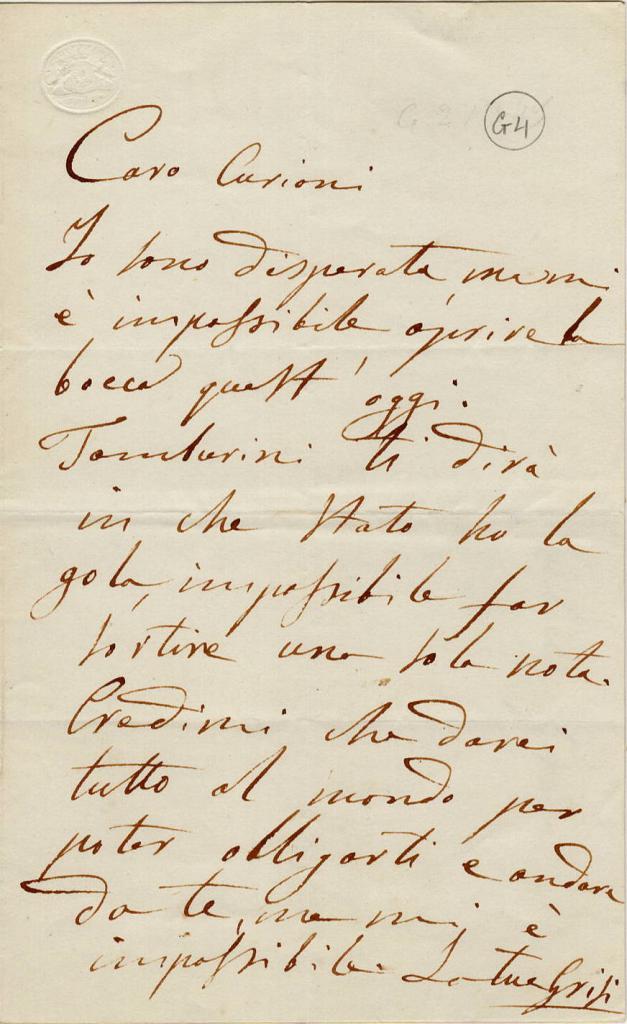 G4
Caro Curioni
Io sono disperata, ma mi
è impossibile aprire la
bocca quest' oggi.
Tamburini ti dirà
in che stato ho la
gola, impossibile far
sortire una sola nota.
Credimi che darei
tutto al mondo per
poter obligarti e andare
da te, ma mi è
impossibile. La tua Grisi